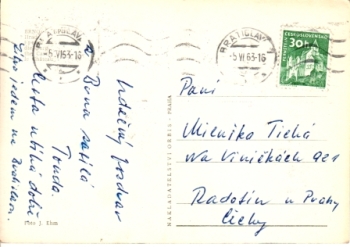 BRATISLAVA
-5.VI 63-16
BRATISLAVA 7
-5.VI 63-16
ČESKOSLOVENSKO
30h
Srdečný pozdrav
z Brna zasílá
Tonda.
Cesta ubíhá dobře
Zítra jedem na Bratislavu.
NAKLADATELSTVÍ ORBIS - PRAHA
Foto J. Ehm
Paní
Tichá
Na Viničkách 921
Radotín u Prahy
Čechy